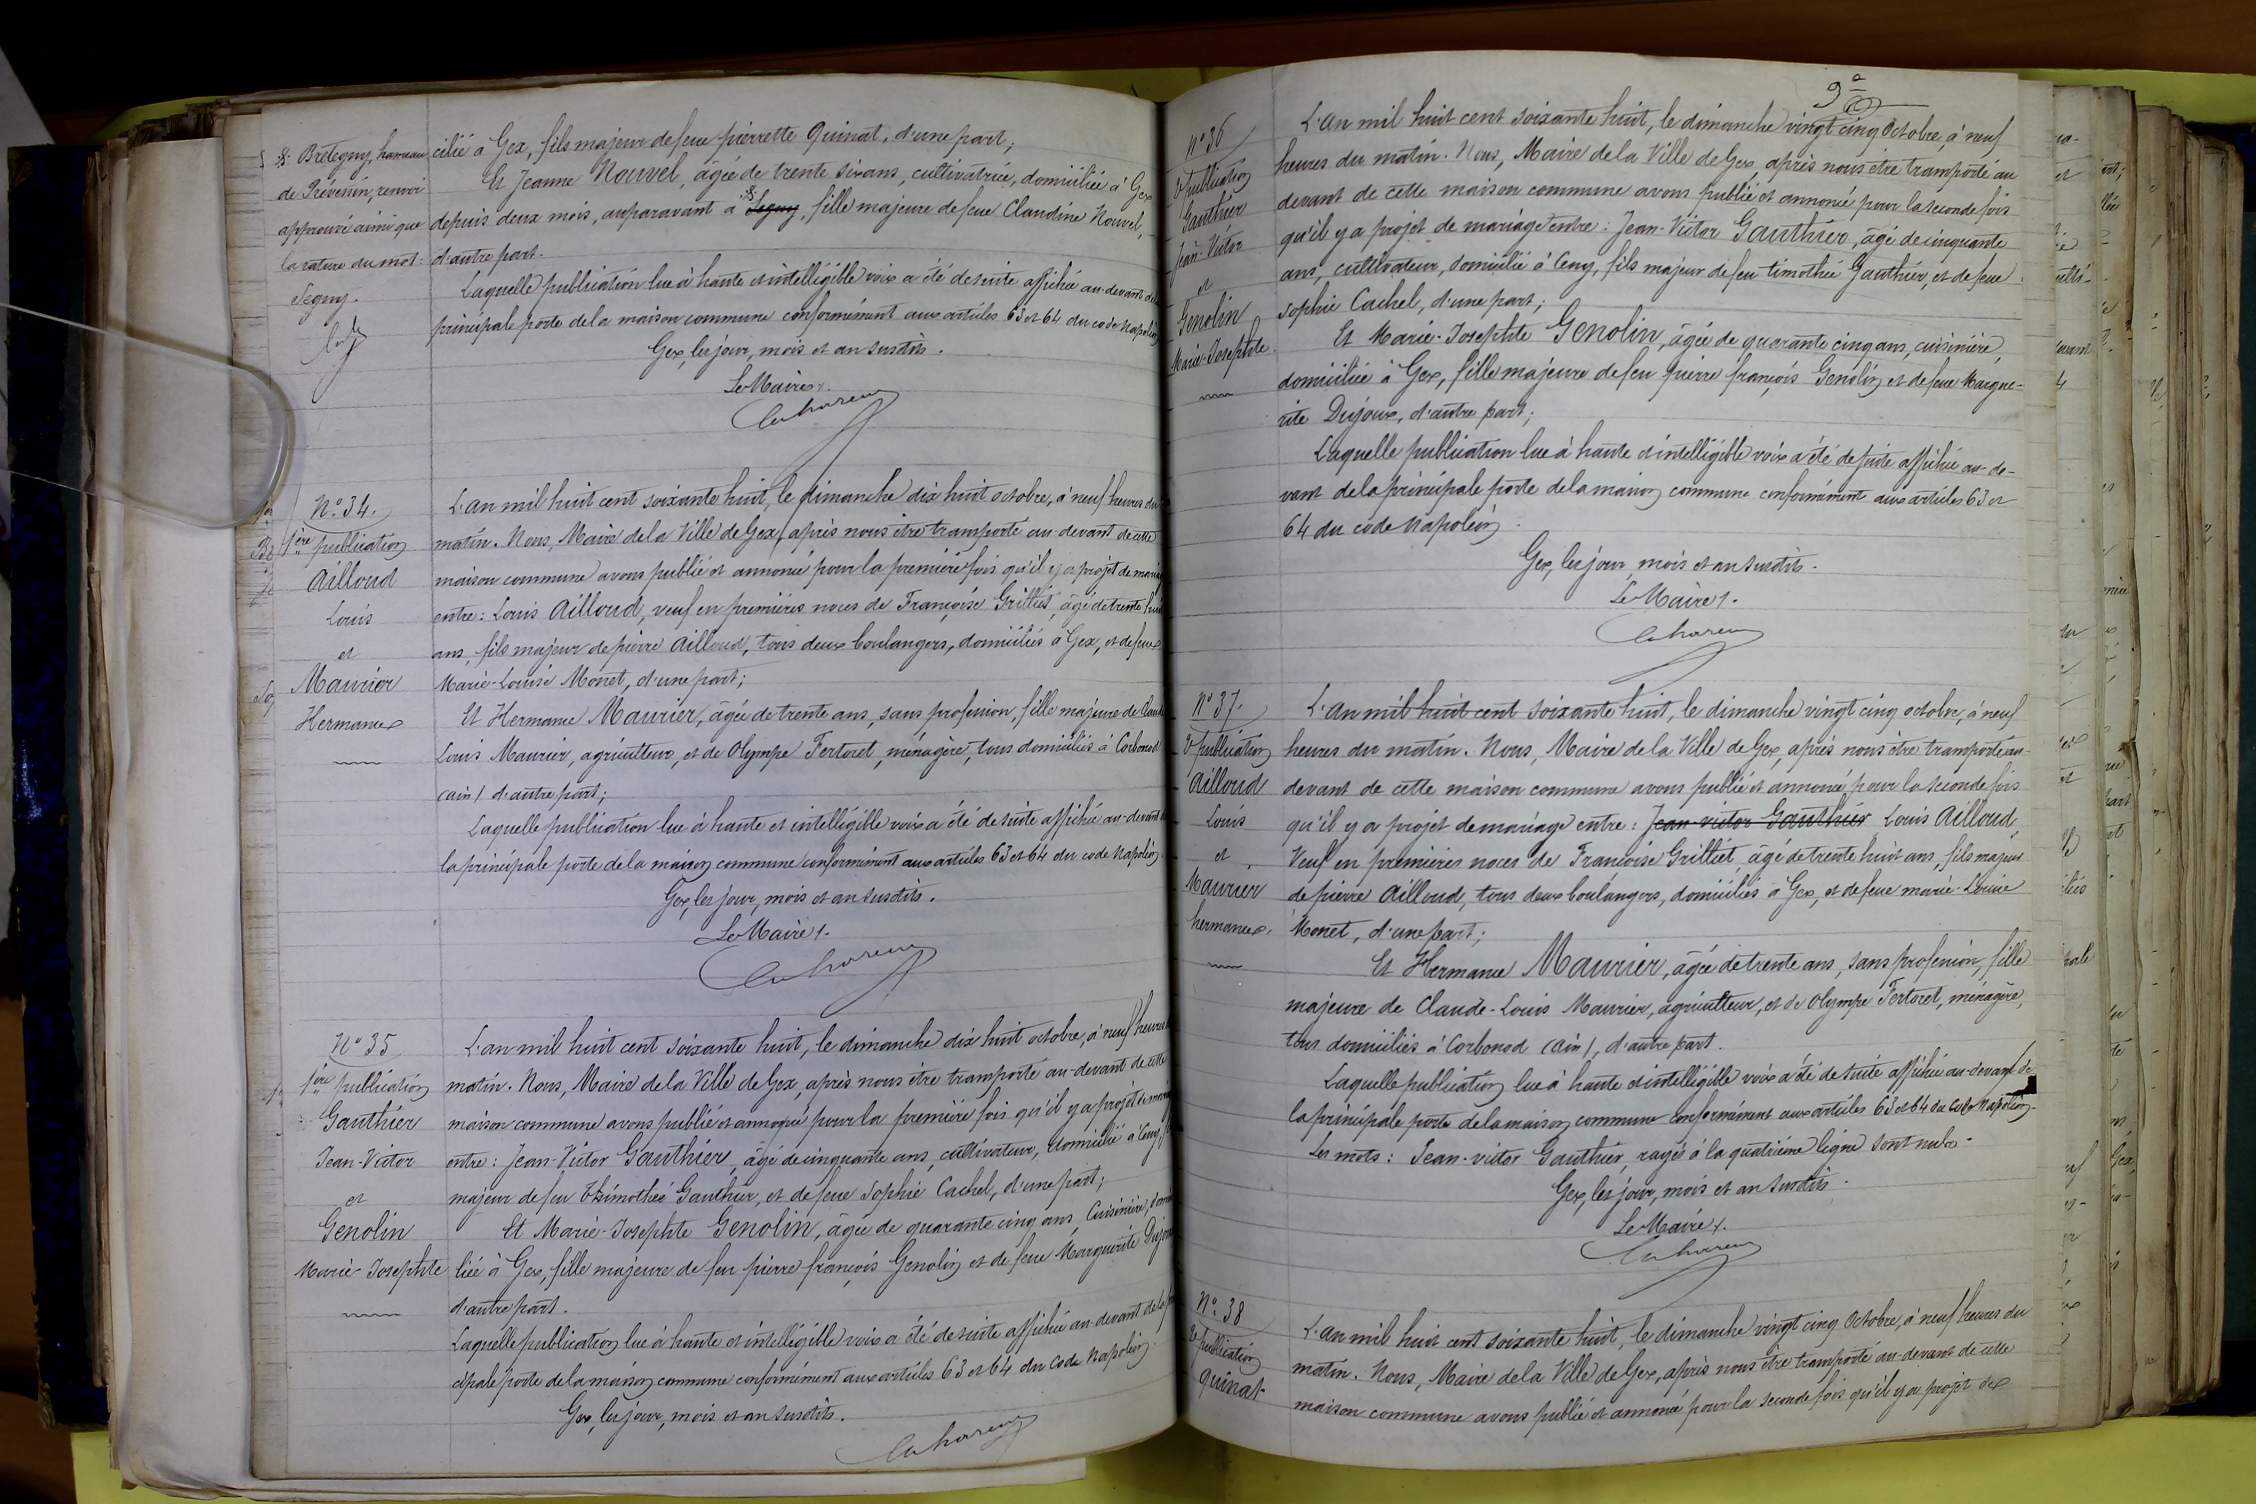 ※ Brétegny, hameau
de Prévessin, renvoi
approuvé ainsi que
la rature du mot:
Segny.
cilié à Gex, fils majeur de feue pierrette Quinat, d'une part;
Et Jeanne Nouvel, âgée de trente six ans, cultivatrice, domiciliée à Gex
depuis deux mois, auparavant à ※ Segny, fille majeure de feue Claudine Nouvel,
d'autre part.
Laquelle publication lue à haute et intelligible voix a été de suite affichée au-devant de la
principale porte de la maison commune conformément aux articles 63 et 64 du code Napoléon
Gex, les jour, mois et an susdits.
Le Maire.
N° 34.
1ère publication
Ailloud
Louis
et
Maurier
Hermance
L'an mil huit cent soixante huit, le dimanche dix huit octobre, à neuf heures du
matin. Nous, Maire de la Ville de Gex, après nous être transporté au-devant de cette
maison commune avons publié et annoncé pour la première fois qu'il y a projet de mariage
entre: Louis Ailloud, veuf en premières noces de Françoise Grilliet, âgé de trente huit
ans, fils majeur de pierre Ailloud, tous deux boulangers, domiciliés à Gex, et de feue
Marie-Louise Monet, d'une part;
Et Hermance Maurier, âgée de trente ans, sans profession, fille majeure de Claude
Louis Maurier, agriculteur, et de Olympe Tertoret, ménagère, tous domiciliés à Corbonod
(ain) d'autre part;
Laquelle publication lue à haute et intelligible voix a été de suite affichée au-devant de
la principale porte de la maison commune conformément aux articles 63 et 64 du code Napoléon.
Gex, les jour, mois et an susdits.
Le Maire.
N° 35
1ère publication
Gauthier
Jean-Victor
et
Genolin
Marie-Josephte
L'an mil huit cent soixante huit, le dimanche dix huit octobre, à neuf heures du
matin. Nous, Maire de la Ville de Gex, après nous être transporté au-devant de cette
maison commune avons publié et annoncé pour la première fois qu'il y a projet de mariage
entre: Jean-Victor Gauthier, âgé de cinquante ans, cultivateur, domicilié à Cessy,
majeur de feu Thimothée Gauthier, et de feue Sophie Cachel, d'une part;
Et Marie-Josephte Genolin, âgée de quarante cinq ans, Cuisinière, domici
liée à Gex, fille majeure de feu pierre françois Genolin et de feue Marguerite Dujoux
d'autre part.
Laquelle publication lue à haute et intelligible voix a été de suite affichée au-devant de la prin
cipale porte de la maison commune conformément aux articles 63 et 64 du Code Napoléon.
Gex, les jour, mois et an susdits.
N° 36
2e publication
Gauthier
Jean-Victor
et
Genolin
Marie-Josephte
L'An mil huit cent soixante huit, le dimanche vingt cinq Octobre, à neuf
heures du matin. Nous, Maire de la Ville de Gex, après nous être transporté au
devant de cette maison commune avons publié et annoncé pour la seconde fois
qu'il y a projet de mariage entre: Jean-Victor Gauthier, âgé de cinquante
ans, cultivateur, domicilié à Cessy, fils majeur de feu timothée Gauthier, et de feue
sophie Cachel, d'une part;
Et Marie-Josephte Genolin, âgée de quarante cinq ans, cuisinière,
domiciliée à Gex, fille majeure de feu pierre françois Genolin et de feue Margue-
rite Dujoux, d'autre part;
Laquelle publication lue à haute et intelligible voix a été de suite affichée au-de-
vant de la principale porte de la maison commune conformément aux articles 63 et
64 du code Napoléon.
Gex, les jour, mois et an susdits.
Le Maire.
N° 37.
2e publication
Ailloud
Louis
et
Maurier
hermance.
L'An mil huit cent soixante huit, le dimanche vingt cinq octobre, à neuf
heures du matin. Nous, Maire de la Ville de Gex, après nous être transporté au-
devant de cette maison commune avons publié et annoncé pour la seconde fois
qu'il y a projet de mariage entre: Jean-victor Gauthier Louis Ailloud,
Veuf en premières noces de Françoise Grilliet, âgé de trente huit ans, fils majeur
de pierre Ailloud, tous deux boulangers, domiciliés à Gex, et de feue marie-Louise
Monet, d'une part;
Et Hermance Maurier, âgée de trente ans, sans profession, fille
majeure de Claude-Louis Maurier, agriculteur, et de Olympe Tertoret, ménagère,
tous domiciliés à Corbonod (ain), d'autre part.
Laquelle publication lue à haute et intelligible voix a été de suite affichée au-devant de
la principale porte de la maison commune conformément aux articles 63 et 64 du Code Napoléon.
Les mots: Jean-victor Gauthier, rayés à la quatrième ligne sont nuls.
Gex, les jour, mois et an susdits.
Le Maire.
N° 38
2e publication
Quinat
L'an mil huit cent soixante huit, le dimanche vingt cinq Octobre, à neuf heures du
matin. Nous, Maire de la Ville de Gex, après nous être transporté au-devant de cette
maison commune avons publié et annoncé pour la seconde fois qu'il y a projet de